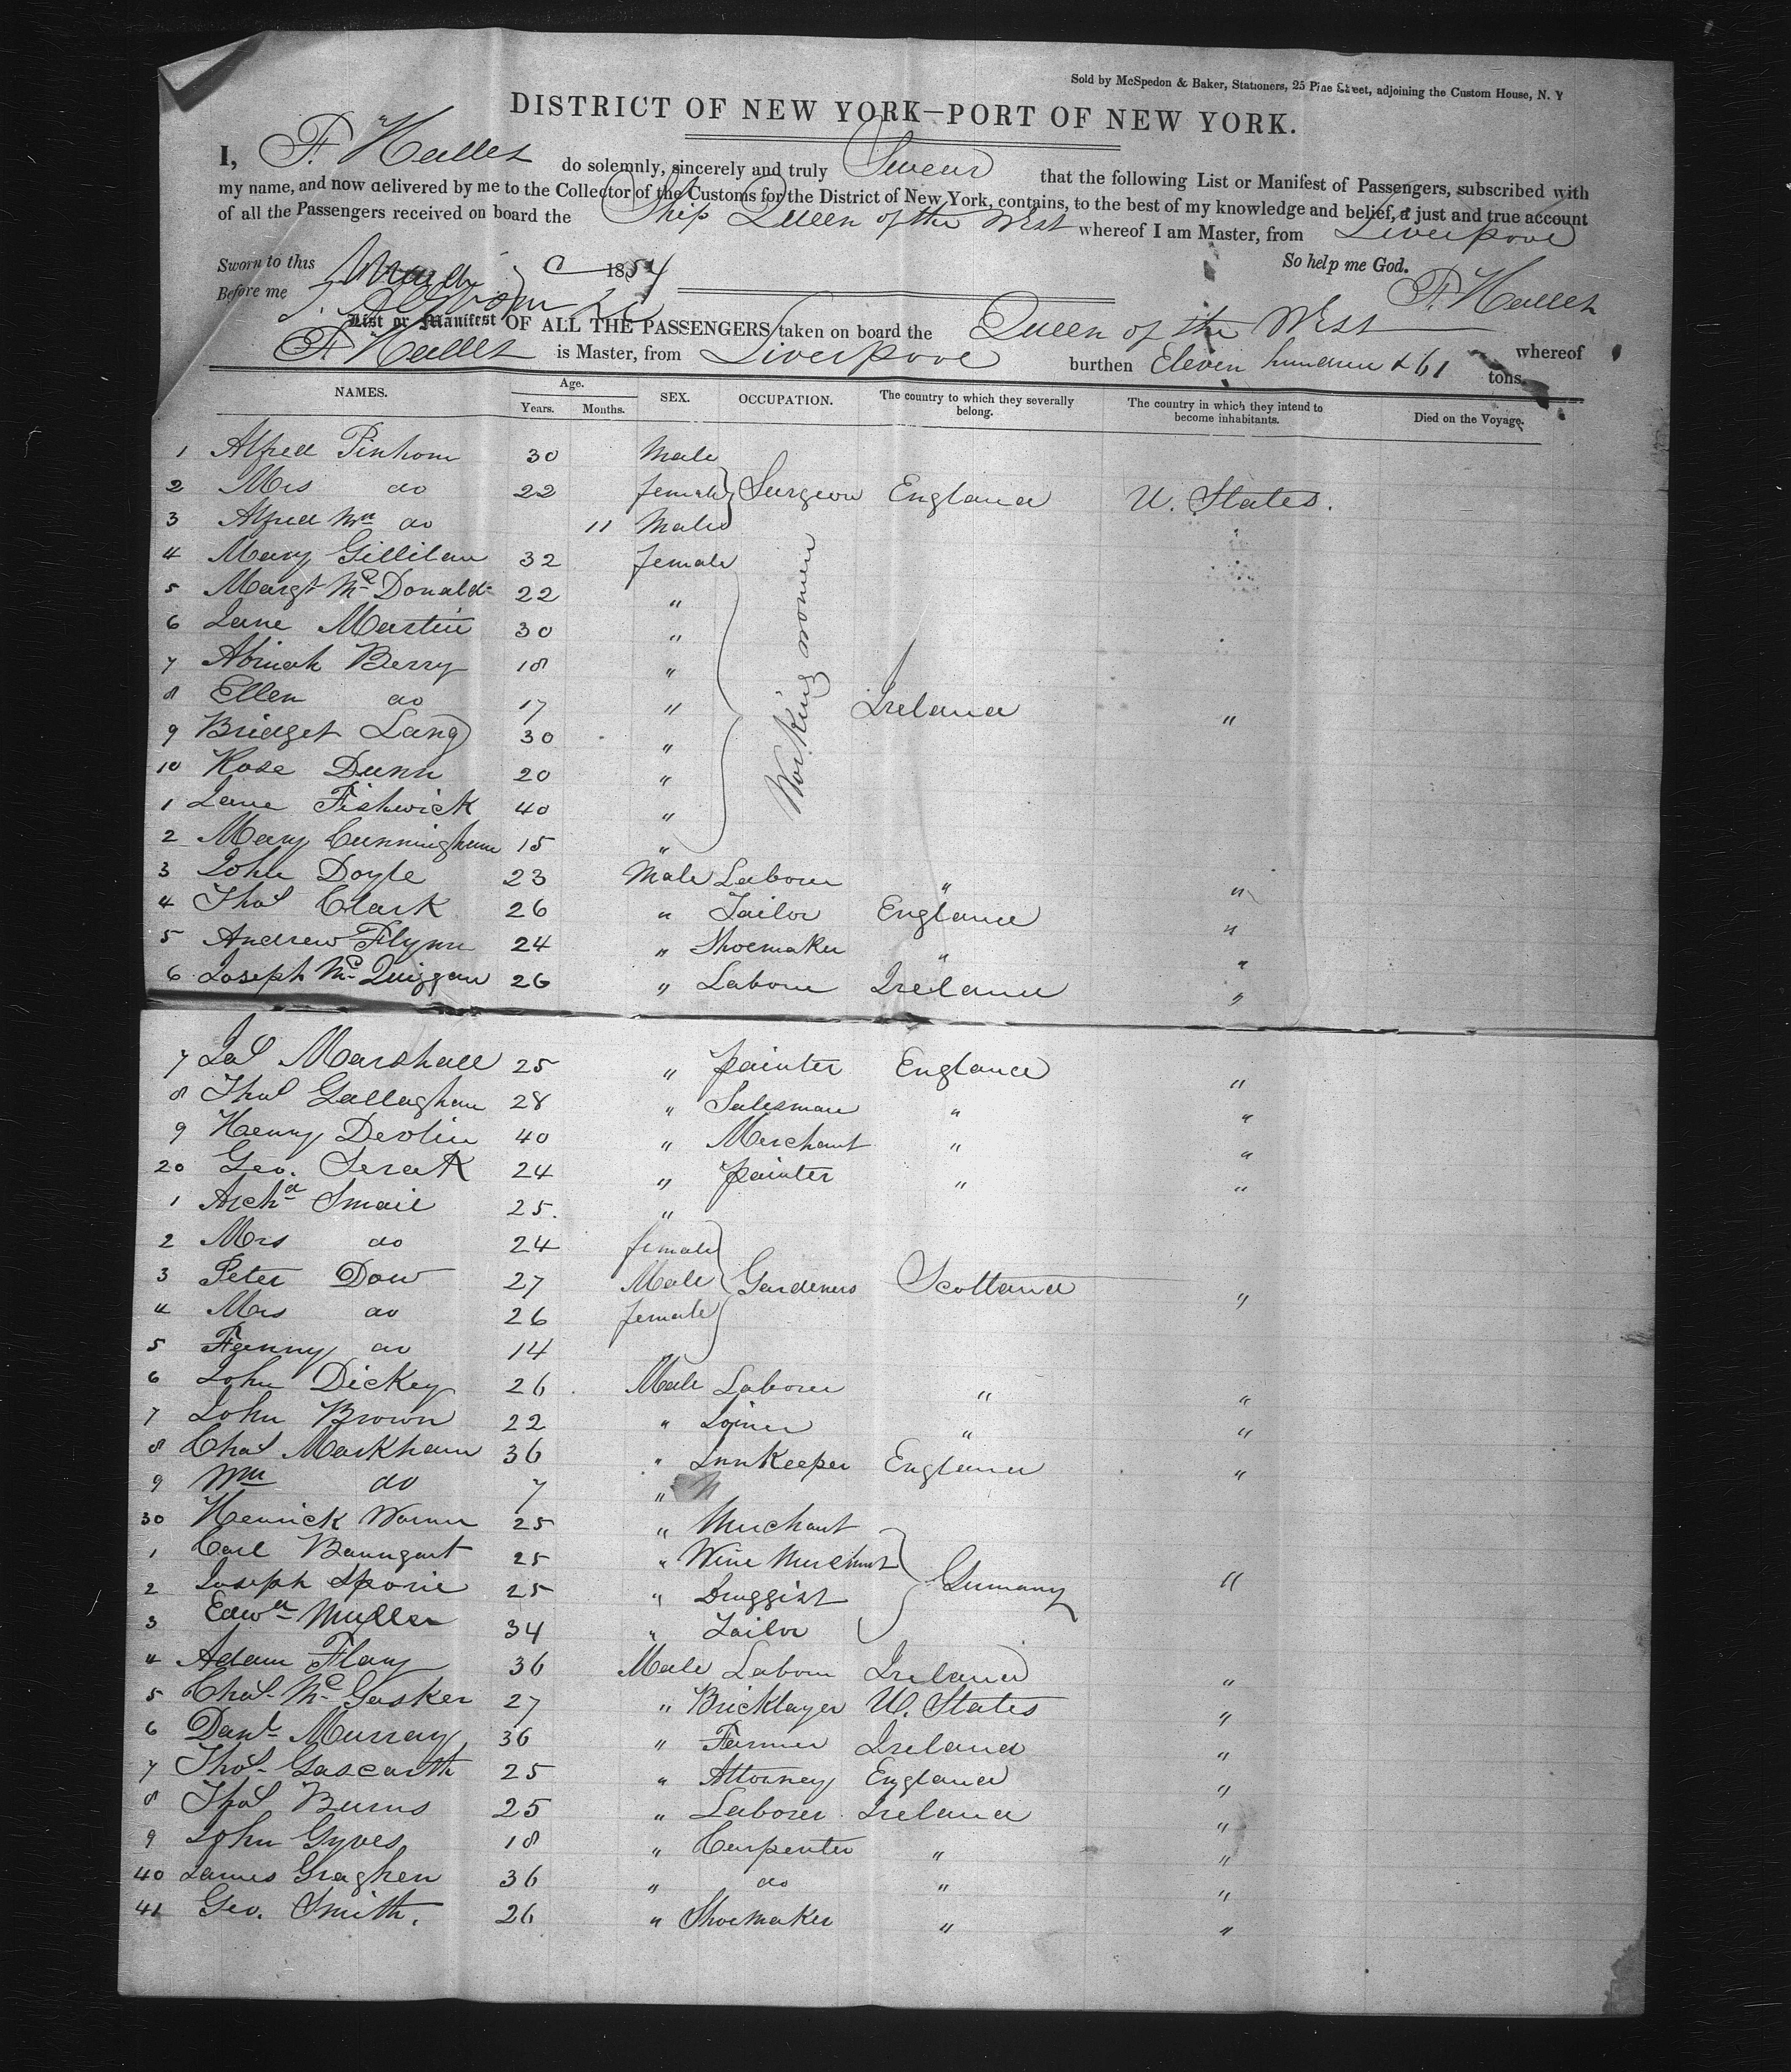 Sold by McSpedon & Baker, Stationers, 25 Pine Street, adjoining the Custom House, N. Y
DISTRICT OF NEW YORK—PORT OF NEW YORK.
I, F. Hallet do solemnly, sincerely and truly Swear that the following List or Manifest of Passengers, subscribed with
my name, and now delivered by me to the Collector of the Customs for the District of New York, contains, to the best of my knowledge and belief, a just and true account
of all the Passengers received on board the Ship Queen of the West whereof I am Master, from Liverpool
Sworn to this 1854 So help me God.
Before me F. Hallet
List or Manifest OF ALL THE PASSENGERS taken on board the Queen of the West whereof
F Hallet is Master, from Liverpool burthen Eleven hundred & 61 tons.
NAMES. Age. Years. Months. SEX. OCCUPATION. The country to which they severally belong. The country in which they intend to become inhabitants. Died on the Voyage.
1 Alfred Pinhom 30 Male
2 Mrs do 22 female Surgeon England U. States.
3 Alfred Wm do 11 Male
4 Mary Gillilan 32 female
5 Margt McDonald 22 "
6 Jane Martin 30 "
7 Abinah Berry 18 " Working women
8 Ellen do 17 " Ireland "
9 Bridget Lang 30 "
10 Rose Dunn 20 "
1 Jane Fishwick 40 "
2 Mary Cunningham 15 "
3 John Doyle 23 Male Laborer " "
4 Thos Clark 26 " Tailor England "
5 Andrew Flynn 24 " Shoemaker " "
6 Joseph McQuiggan 26 " Laborer Ireland "
7 Jas Marshall 25 " painter England "
8 Thos Gallaghan 28 " Salesman " "
9 Henry Devlin 40 " Merchant " "
20 Geo. 24 " painter " "
1 Archd Smail 25. "
2 Mrs do 24 female
3 Peter Dow 27 Male Gardeners Scotland "
4 Mrs do 26 female
5 Fanny do 14
6 John Dickey 26 Male Laborer " "
7 John Brown 22 " Joiner " "
8 Chas Markham 36 " Innkeeper England "
9 Wm do 7 "
30 Henrick Warner 25 " Merchant
1 Carl Baumgart 25 " Wine Merchant
2 Joseph 25 " Druggist Germany "
3 Edwd Muller 34 " Tailor
4 Adam Flary 36 Male Laborer Ireland "
5 Chas McGosker 27 " Bricklayer U. States "
6 Danl Murray 36 " Farmer Ireland "
7 Thos Gascarth 25 " Attorney England "
8 Thos Burns 25 " Laborer Ireland "
9 John Gyves 18 " Carpenter " "
40 James Graghen 36 " do " "
41 Geo. Smith. 26 " Shoemaker " "